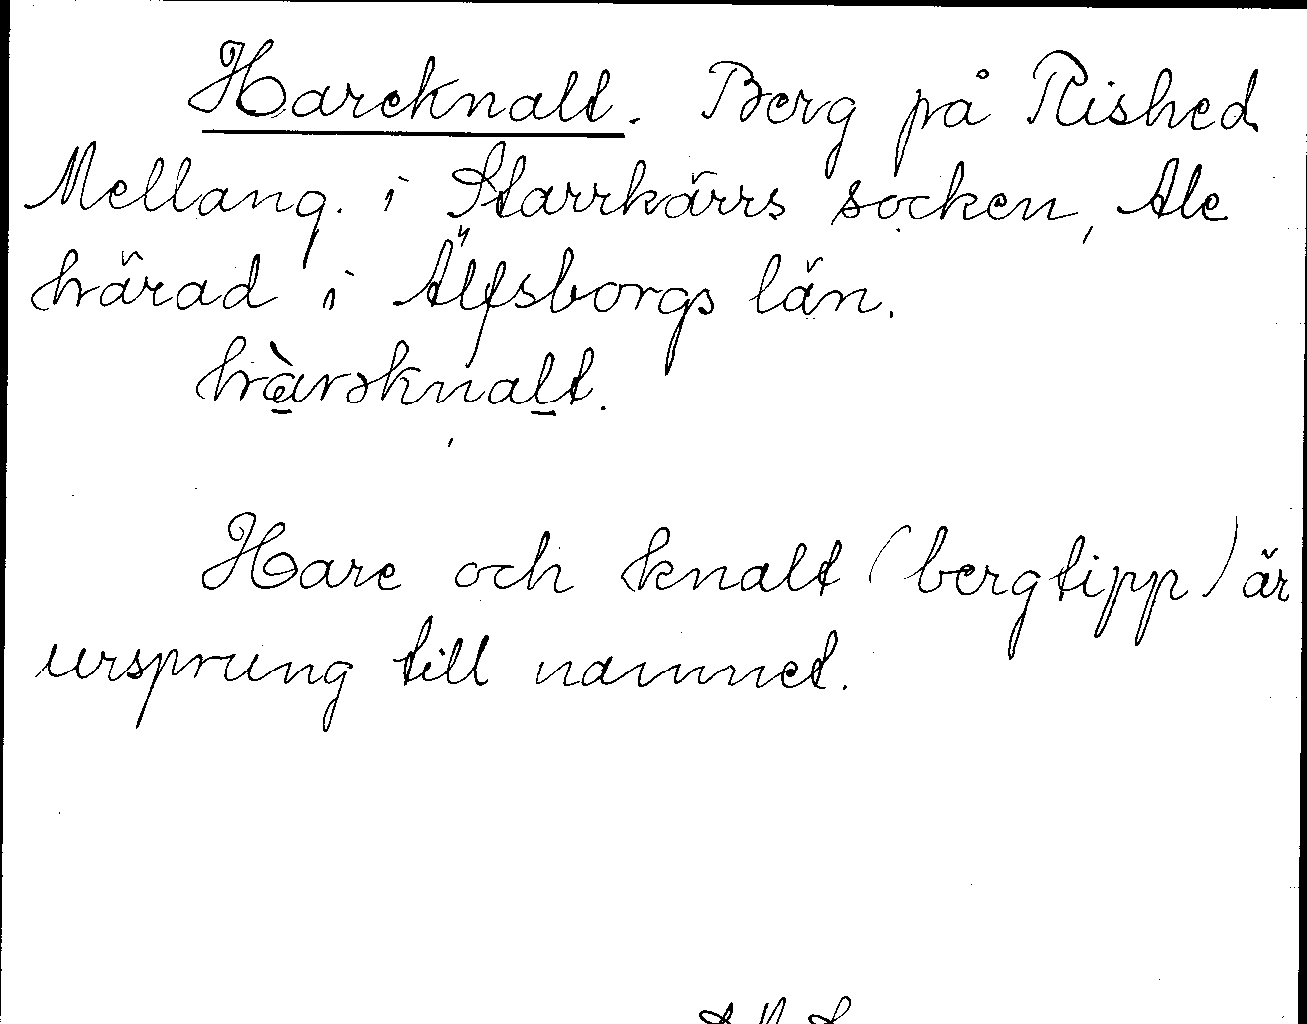 Hareknalt. Berg på Rished
Mellang. i Starrkärrs socken, Ale
härad i Älfsborgs län.
hàrəknalt.
Hare och knalt (bergtipp) är
ursprung till namnet.